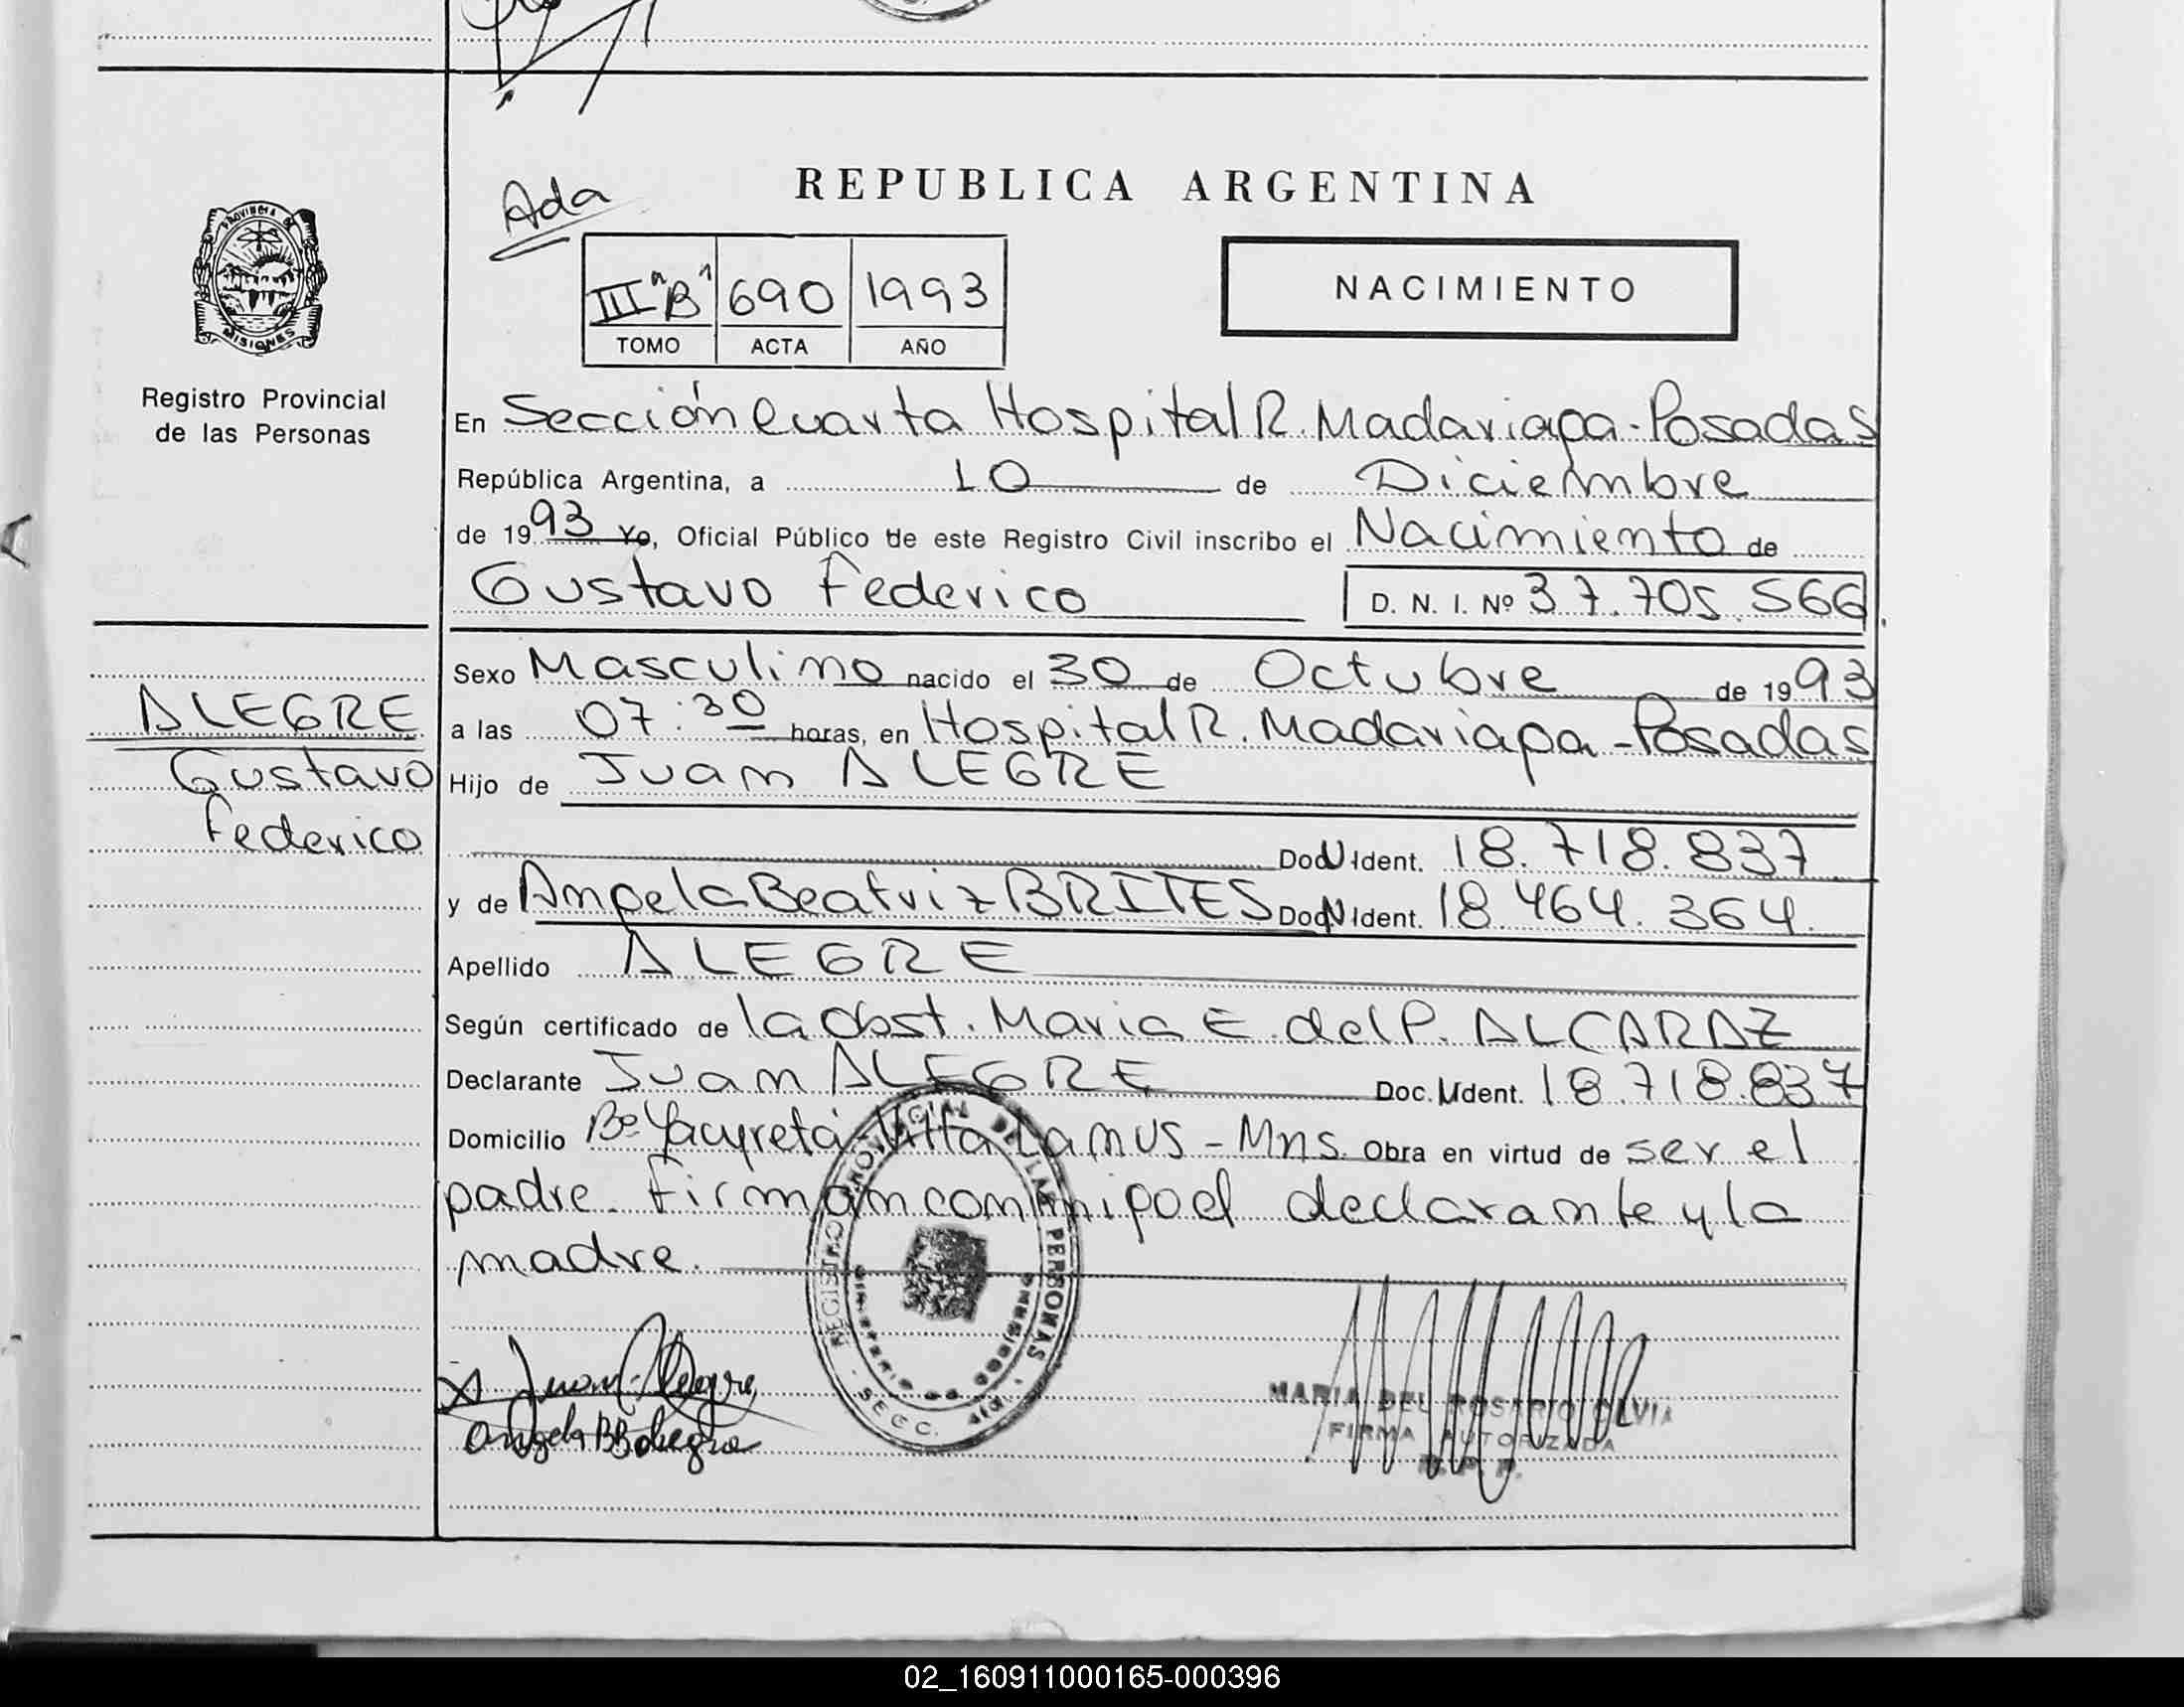 REPUBLICA ARGENTINA
Ada
III "B" 690 1993
TOMO ACTA AÑO
NACIMIENTO
PROVINCIA DE
MISIONES
Registro Provincial
de las Personas
En Sección Cuarta Hospital R. Madariaga - Posadas
República Argentina, a 10 de Diciembre
de 1993 Yo, Oficial Público de este Registro Civil inscribo el Nacimiento de
Gustavo Federico D. N. I. Nº 37.705.566
Sexo Masculino nacido el 30 de Octubre de 1993
a las 07:30 horas, en Hospital R. Madariaga - Posadas
Hijo de Juan ALEGRE
Doc. Ident. 18.718.837
y de Angela Beatriz BRITES Doc. Ident. 18.464.364
Apellido ALEGRE
Según certificado de la Obst. Maria E. del P. ALCARAZ
Declarante Juan ALEGRE Doc. Ident. 18.718.837
Domicilio Bº Yacyretá - Villa Lanus - Mns. Obra en virtud de ser el
padre. Firman conmigo el declarante y la
madre.
ALEGRE
Gustavo
Federico
REGISTRO PROVINCIAL DE LAS PERSONAS
MINISTERIO DE GOBIERNO
SECC.
X Juan Alegre
MARIA DEL ROSARIO OLVIA
FIRMA AUTORIZADA
R. P. P.
02_160911000165-000396